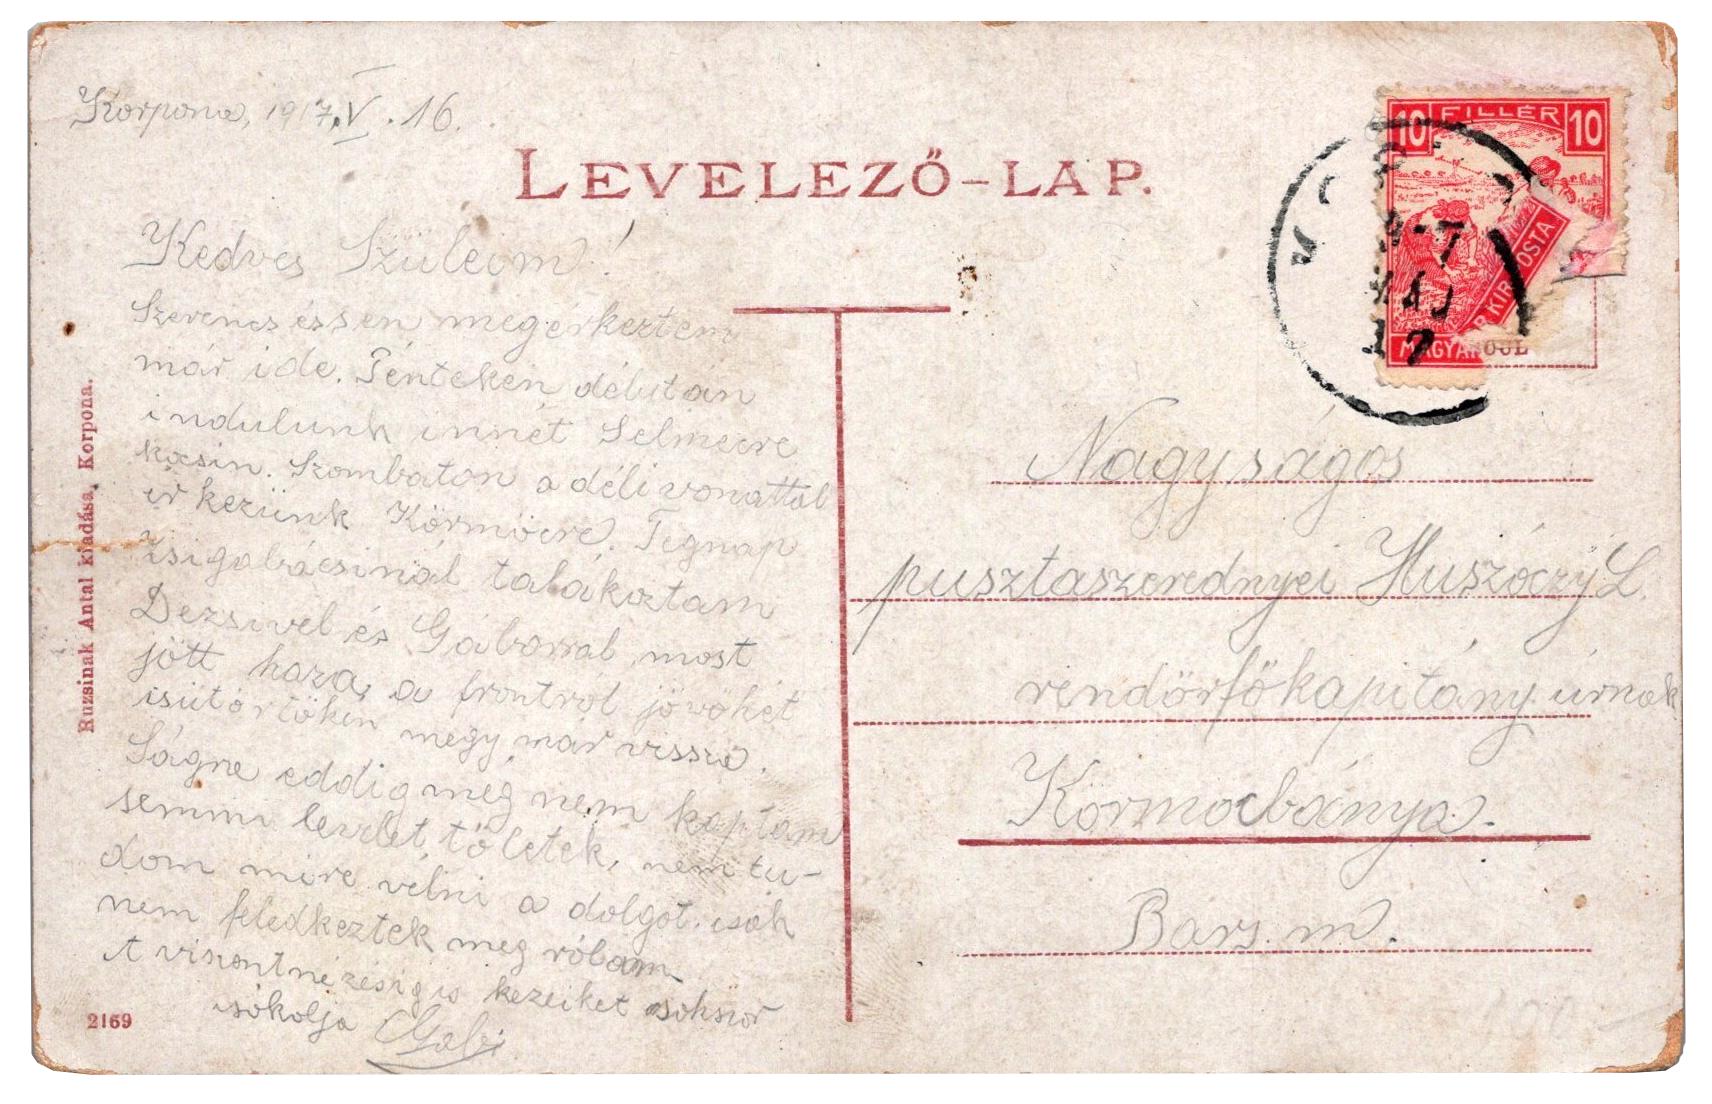 Korpona, 1917. V. 16.
LEVELEZŐ-LAP.
Kedves Szüleim!
Szerencsésen megérkeztem
már ide. Pénteken délután
indulunk innét Selmecre
kocsin. Szombaton a déli vonattal
érkezünk Körmöcre. Tegnap
Zsigabácsinál talákoztam
Dezsivel és Gáborral, most
jött haza, a frontról jövőhét
csütörtökön megy már vissza.
Ságra eddig még nem kaptam
semmi levelet tőletek, nem tu-
dom mire vélni a dolgot. csak
nem feledkeztek meg rólam
A viszontnézésig is kezeiket sokszor
csókolja Gabi
Ruzsinak Antal kiadása, Korpona.
2169
10 FILLÉR 10
MAGYAR KIR POSTA
MÁJ
17
Nagyságos
pusztaszerednyei Huszóczÿ L.
rendörfőkapitány úrnak
Körmöcbánya.
Bars. m.